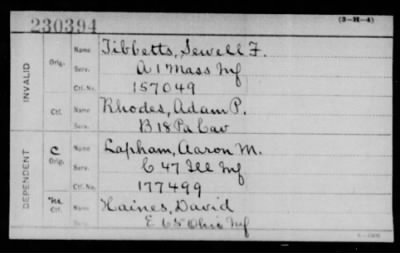 230394 (3-H-4)
INVALID
Orig. Name Tibbetts, Sewell F.
Serv. A 1 Mass Inf
Ctf. No. 157049
Ctf. Name Rhodes, Adam P.
Serv. B 18 Pa Cav
DEPENDENT
C Orig. Name Lapham, Aaron M.
Serv. C 47 Ill Inf
Ctf. No. 177499
Ctf. Name Haines, David
Serv. E 65 Ohio Inf